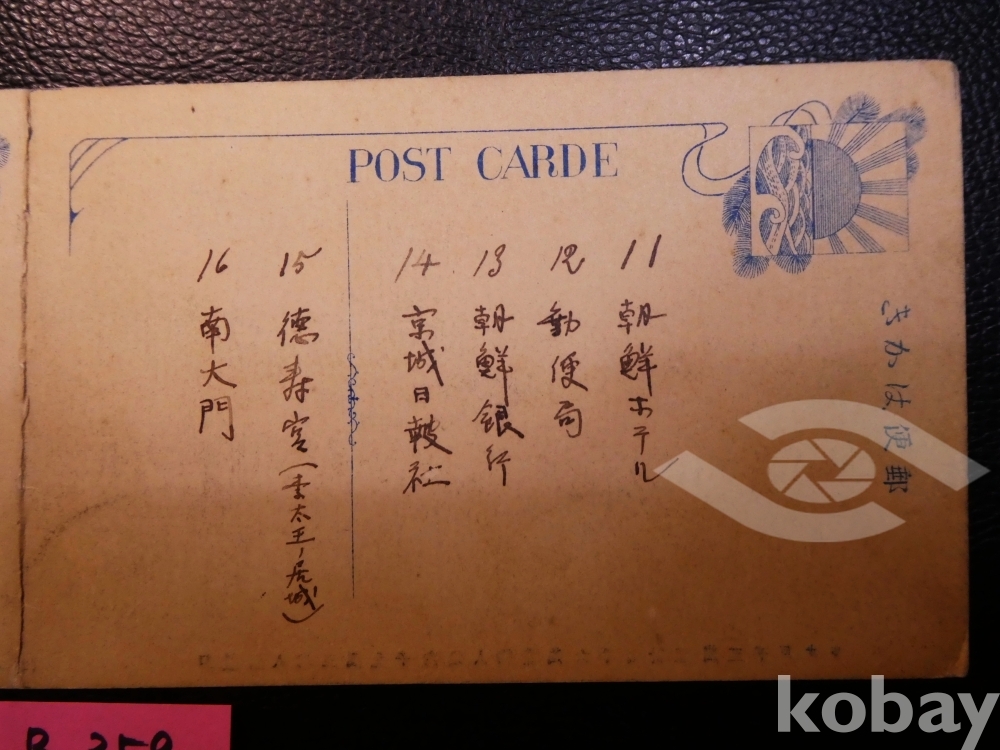 POST CARDE
きかは便郵
11 朝鮮ホテル
12 郵便局
13 朝鮮銀行
14 京城日報社
15 徳寿宮(李太王ノ居城)
16 南大門
kobay